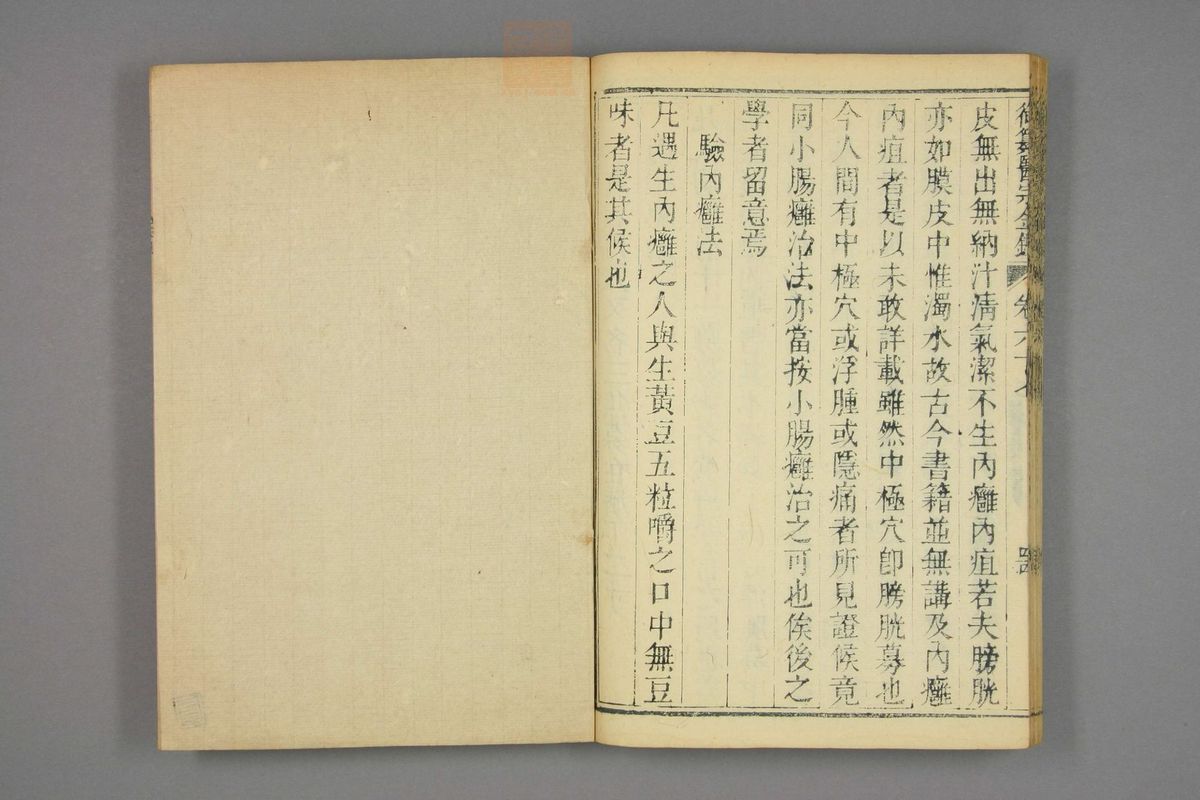 御纂醫宗金鑑 卷六十七
皮無出無納汁淸氣潔不生內癰內疽若夫膀胱
亦如膜皮中惟濁水故古今書籍並無講及內癰
內疽者是以未敢詳載雖然中極穴卽膀胱募也
今人間有中極穴或浮腫或隱痛者所見證候竟
同小腸癰治法亦當按小腸癰治之可也俟後之
學者留意焉
驗內癰法
凡遇生內癰之人與生黃豆五粒嚼之口中無豆
味者是其候也